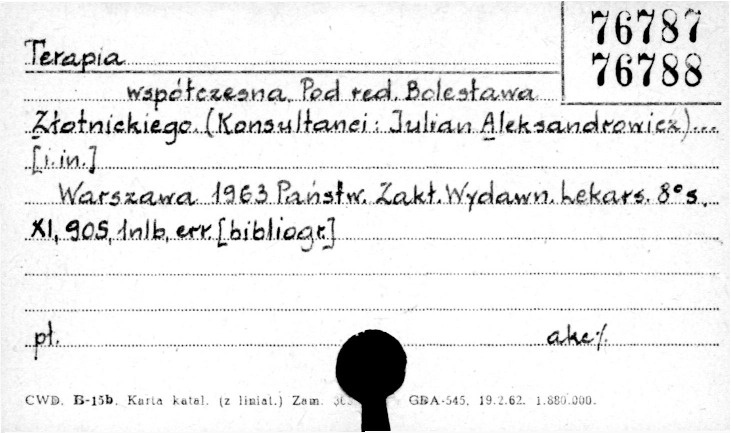 76787
76788
Terapia
współczesna. Pod red. Bolesława
Złotnickiego. (Konsultanci: Julian Aleksandrowicz)...
[i. in.]
Warszawa 1963 Państw. Zakł. Wydawn. Lekars. 8° s.
XI, 905, 1nlb, err. [bibliogr.]
pł. akc %
CWD. B-15b. Karta katal. (z liniat.) Zam. GDA-545. 19.2.62. 1.880.000.